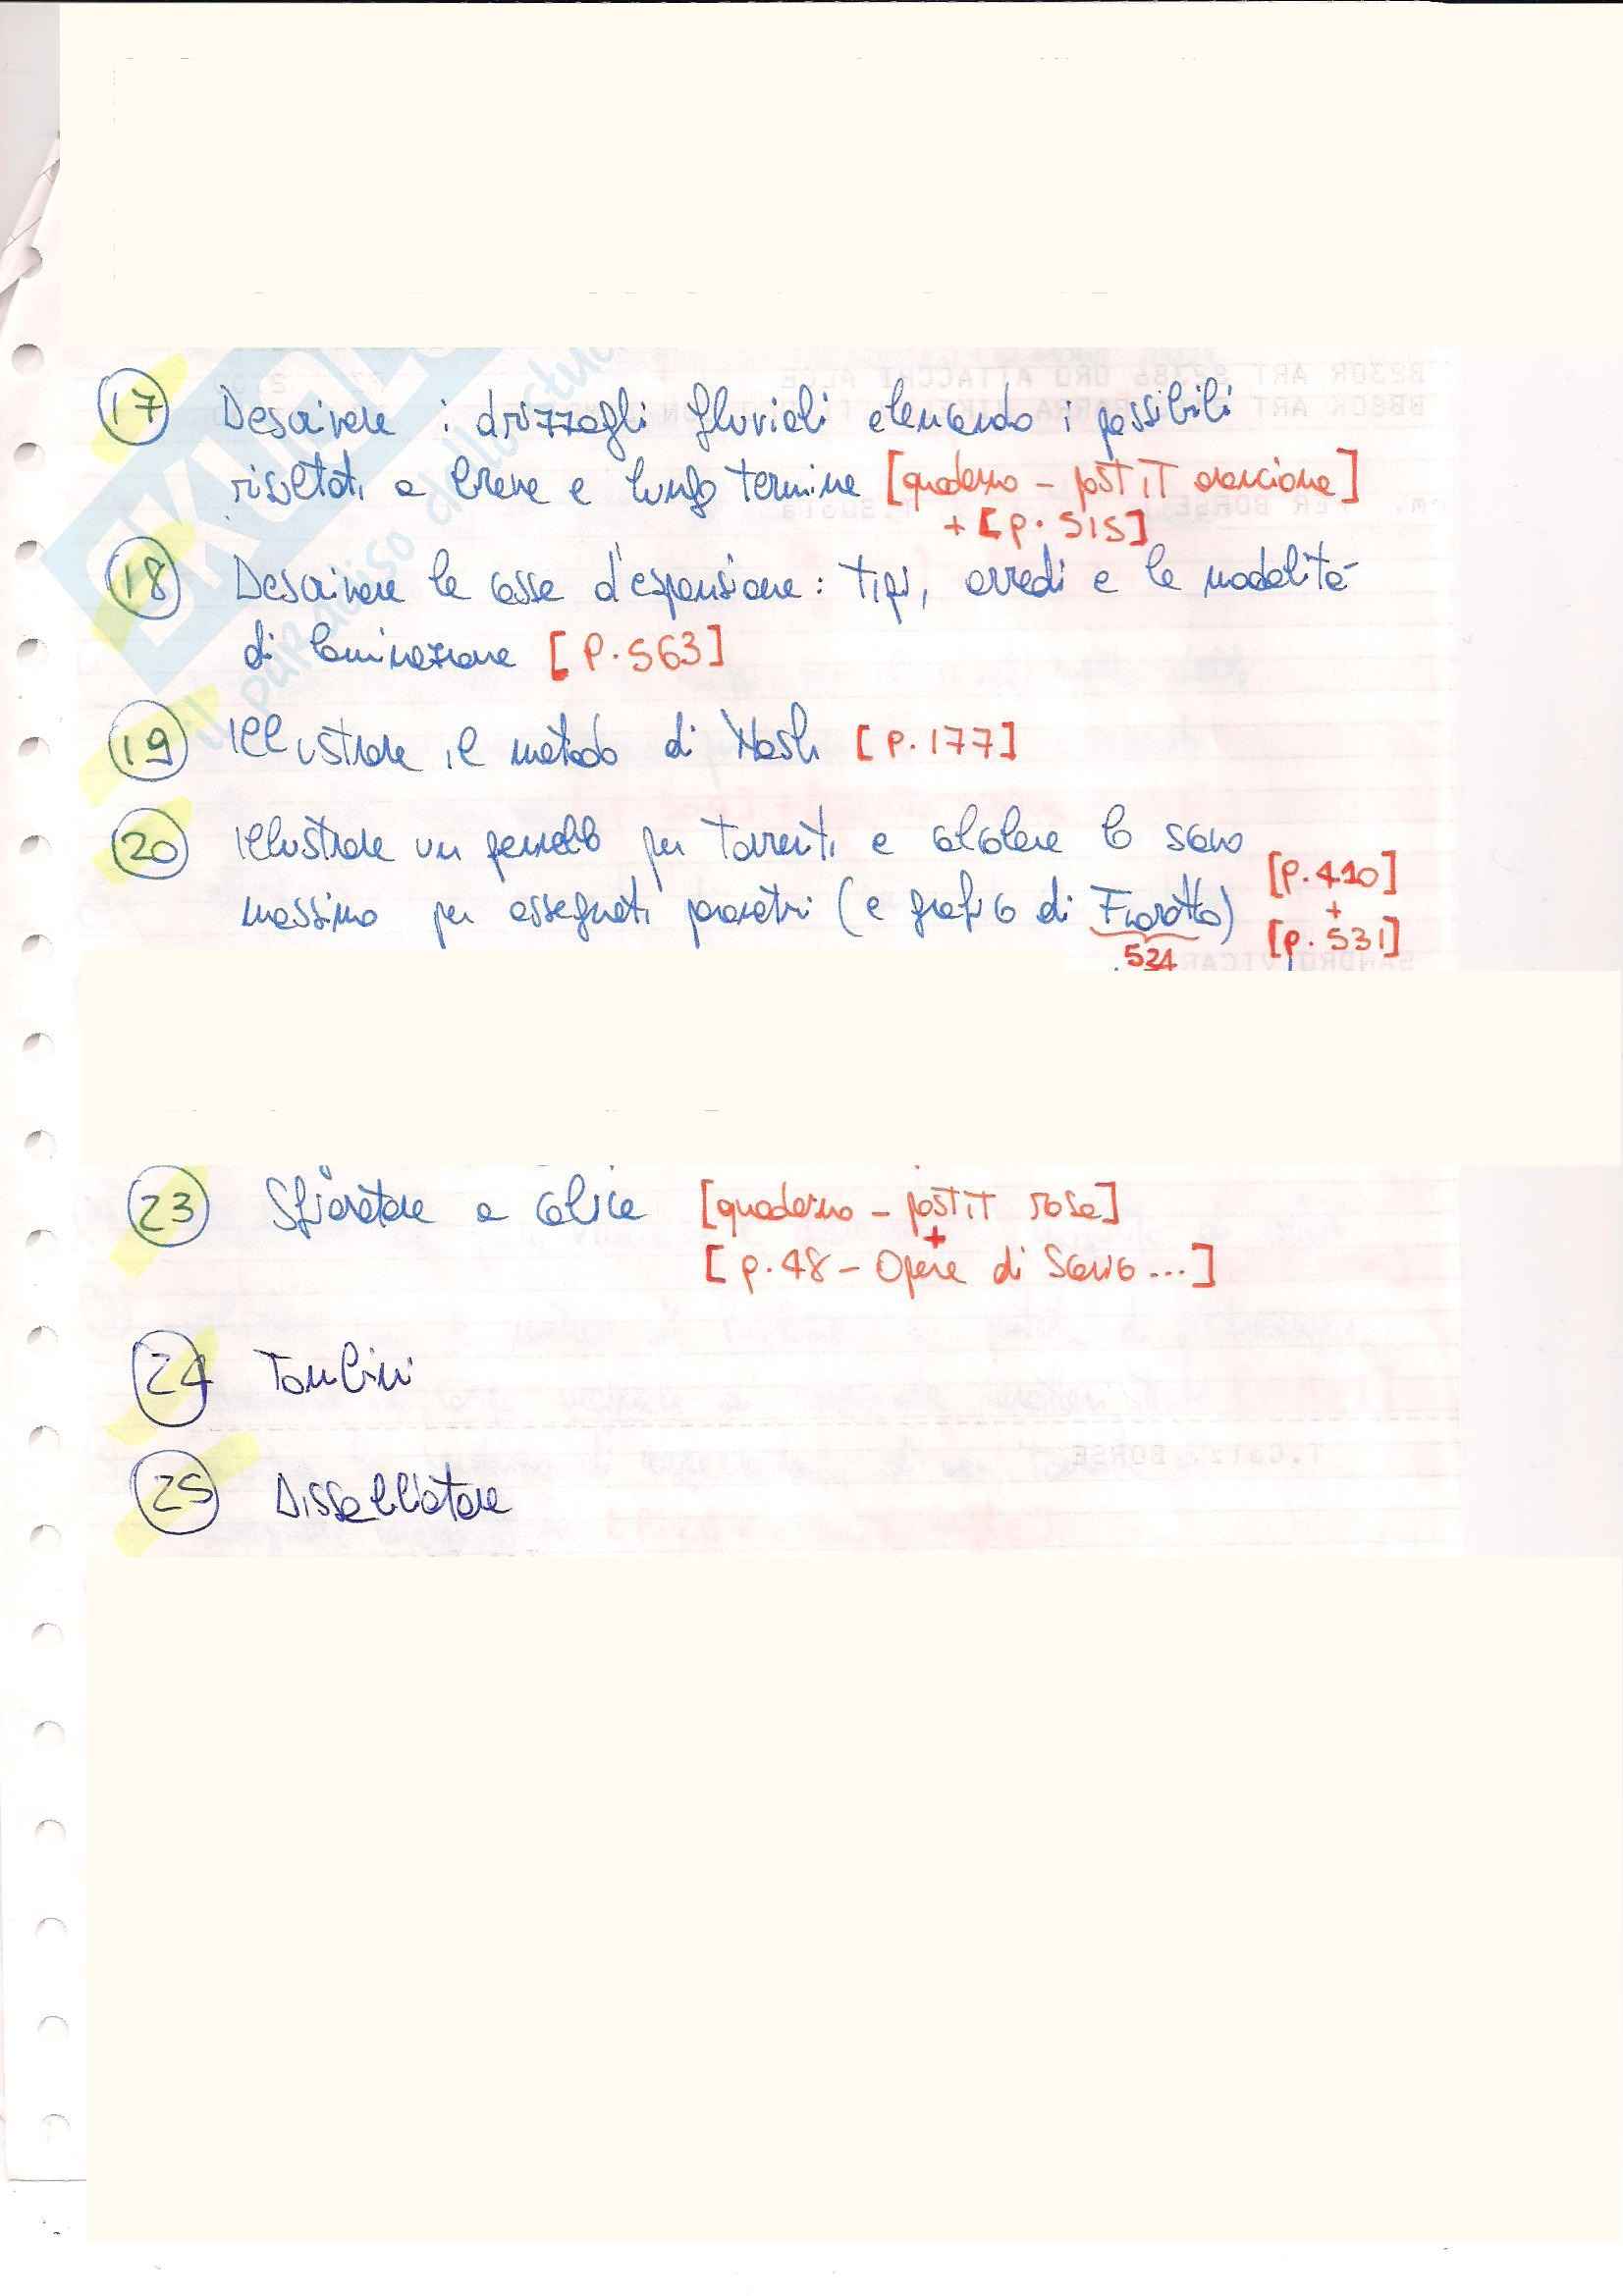 17 Descrivere i drizzagli fluviali elencando i possibili
risultati a breve e lungo termine [quaderno - post iT arancione]
+ [p. 515]
18 Descrivere le casse d'espansione: tipi, arredi e le modalità
di laminazione [P. 563]
19 Illustrare il metodo di Nash [P. 177]
20 Illustrare un pennello per torrenti e calcolare lo scavo
massimo per assegnati parametri (e grafico di Fiorotto) [p. 410]
+
[p. 531]
524
23 Sfioratore a calice [quaderno - post iT rosa]
+
[p. 48 - Opere di Scarico ...]
24 Tombini
25 Dissabbiatore
SKUOLA
il paradiso dello stu